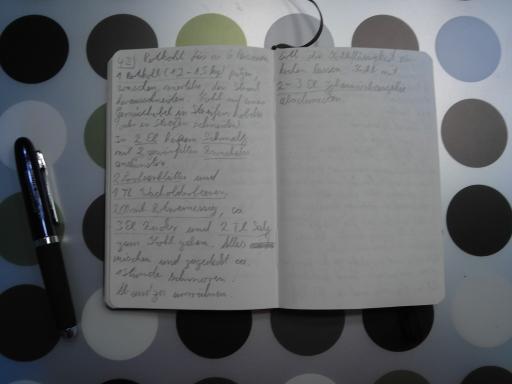 42) Rotkohl für ca 6 Personen
1 Rotkohl (1,2 - 1,5 kg) putzen,
waschen, vierteln, den Strunk
herausschneiden. Kohl auf einem
Gemüsehobel in Streifen hobeln
(oder in Streifen schneiden)
In 2 El heißem Schmalz
mit 2 gewürfelten Zwiebeln
andünsten
2 Lorbeerblätter und
1 TL Wacholderbeeren,
Rotweinessig, ca
3 El Zucker und 2 Tl Salz
zum Kohl geben. Alles
mischen und zugedeckt ca.
1 Stunde schmoren.
Ab und zu umrühren.
soll die Kohlflüssigkeit
lassen. Kohl mit
2-3 El
abschmecken